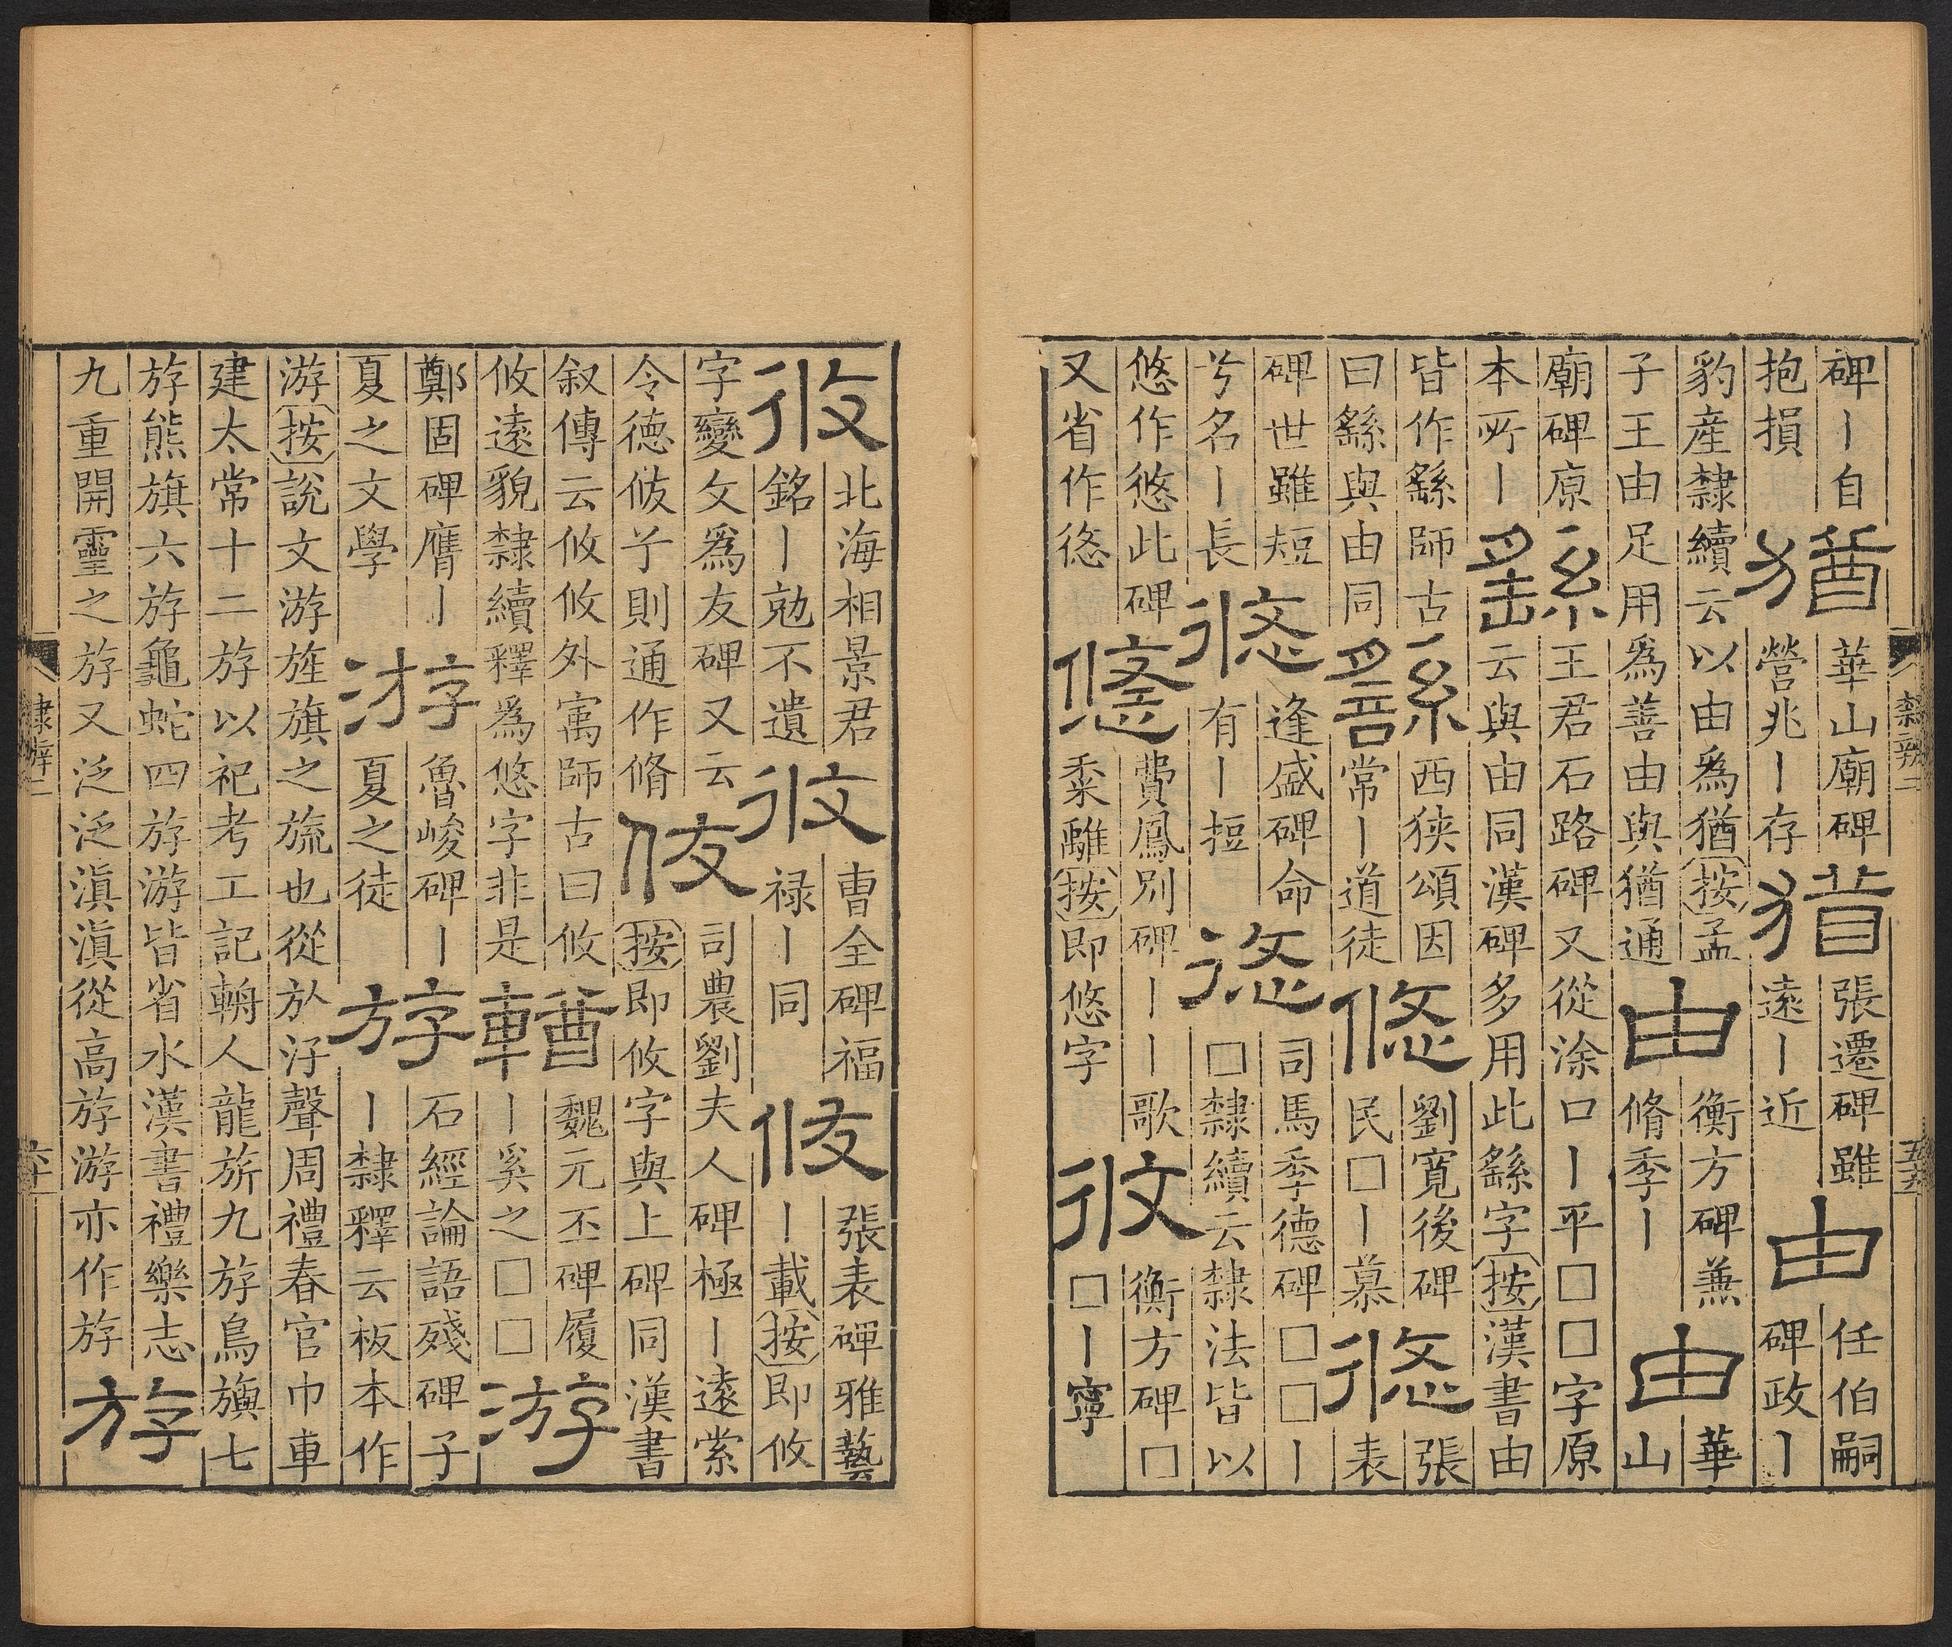 碑丨自
抱損
猶
華山廟碑
營兆丨存
猶
張遷碑雖
遠丨近
由
任伯嗣
碑政丨
豹產隸續云以由爲猶按孟
子王由足用爲善由與猶通
由
衡方碑兼
脩季丨
由
華
山
廟碑原
本所丨
繇
王君石路碑又從涂口丨平□□字原
云與由同漢碑多用此繇字按漢書由
皆作繇師古
曰繇與由同
繇
西狹頌因
常丨道徒
悠
劉寬後碑
民□丨慕
悠
張
表
碑世雖短
兮名丨長
悠
逢盛碑命
有丨短
悠
司馬季德碑□□丨
□隸續云隸法皆以
悠作悠此碑
又省作悠
悠
費鳳別碑丨丨歌
黍離按即悠字
攸
衡方碑□
□丨寧
隸辨二
五十九
攸
北海相景君
銘丨勀不遺
攸
曹全碑福
祿丨同
攸
張表碑雅藝
丨載按即攸
字變攵爲友碑又云
令德攸兮則通作脩
攸
司農劉夫人碑極丨遠索
按即攸字與上碑同漢書
叙傳云攸攸外寓師古曰攸
攸遠貌隸續釋爲悠字非是
輶
魏元丕碑履
丨奚之□□
游
鄭固碑膺丨
夏之文學
游
魯峻碑丨
夏之徒
斿
石經論語殘碑子
丨隸釋云板本作
游按說文游旌旗之旒也從㫃汓聲周禮春官巾車
建太常十二斿以祀考工記輈人龍旂九斿鳥旟七
斿熊旗六斿龜蛇四斿游皆省水漢書禮樂志
九重開靈之斿又泛泛滇滇從高斿游亦作斿
斿
隸辨二
六十